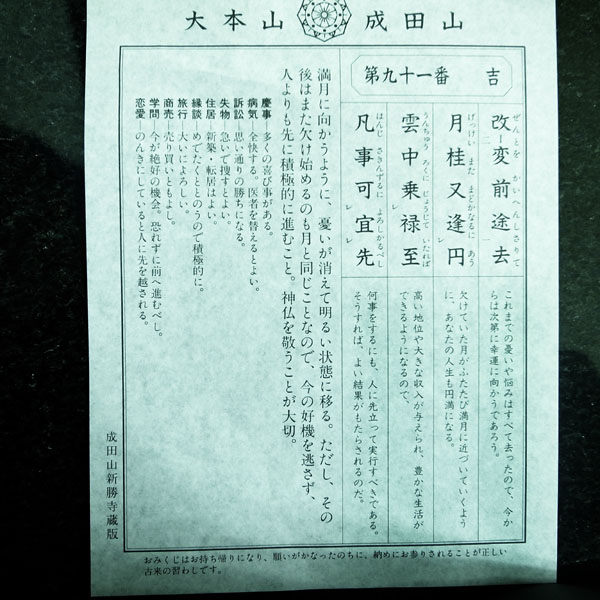 大本山 成田山
第九十一番 吉
ぜんとを かいへんしさりて
改変前途去
これまでの憂いや悩みはすべて去ったので、今か
らは次第に幸運に向かうであろう。
げっけい また まどかなるに あう
月桂又逢円
欠けていた月がふたたび満月に近づいていくよう
に、あなたの人生も円満になる。
うんちゅう ろくに じょうじて いたれば
雲中乗禄至
高い地位や大きな収入が与えられ、豊かな生活が
できるようになるので、
はんじ さきんずるに よろしかるべし
凡事可宜先
何事をするにも、人に先立って実行すべきである。
そうすれば、よい結果がもたらされるのだ。
満月に向かうように、憂いが消えて明るい状態に移る。ただし、その
後はまた欠け始めるのも月と同じことなので、今の好機を逃さず、
人よりも先に積極的に進むこと。神仏を敬うことが大切。
慶事―多くの喜び事がある。
病気―全快する。医者を替えるとよい。
訴訟―思い通りの勝ちになる。
失物―急いで捜すとよい。
住居―新築・転居はよい。
縁談―めでたくととのうので積極的に。
旅行―大いによろしい。
商売―売り買いともよし。
学問―今が絶好の機会。恐れずに前へ進むべし。
恋愛―のんきにしていると人に先を越される。
成田山新勝寺蔵版
おみくじはお持ち帰りになり、願いがかなったのちに、納めにお参りされることが正しい
古来の習わしです。